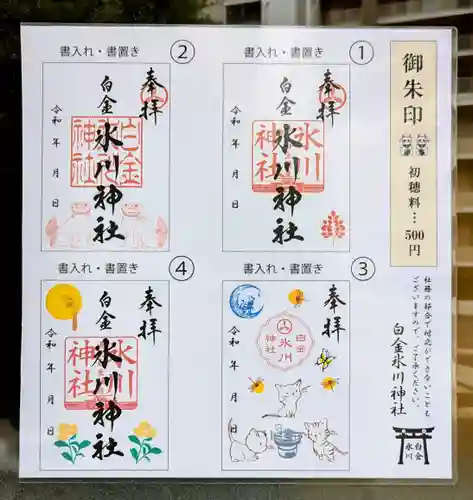 御朱印
初穂料…500円
社務の都合で対応ができないことも
ございますので、ご了承ください。
白金氷川神社
白金
氷川
書入れ・書置き ①
奉拝
白金
氷川神社
氷川
神社
令和 年 月 日
書入れ・書置き ②
奉拝
白金
氷川神社
白金
氷川
神社
令和 年 月 日
書入れ・書置き ③
奉拝
白金
氷川
神社
令和 年 月 日
書入れ・書置き ④
奉拝
白金
氷川神社
氷川
神社
令和 年 月 日